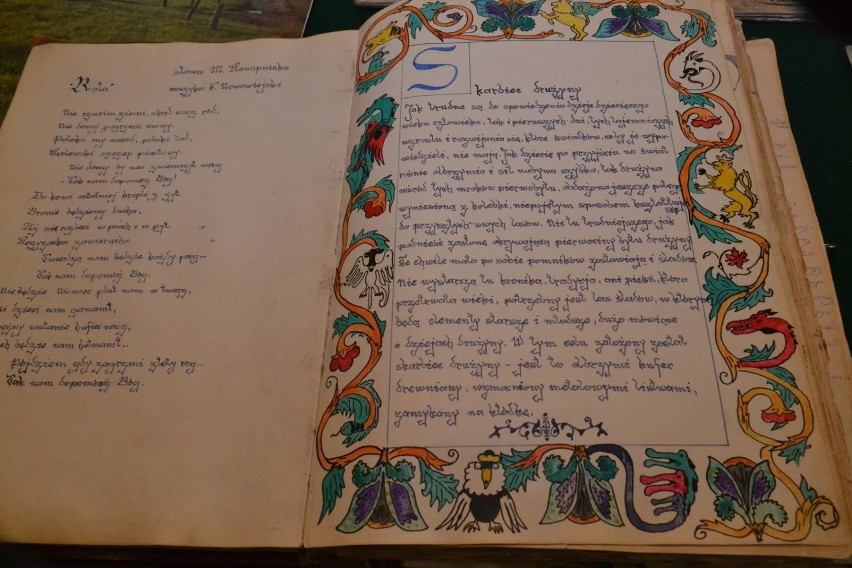 "Rota"
słowa M. Konopnicka
muzyka F. Nowowiejski
Nie rzucim ziemi, skąd nasz ród,
Nie damy pogrześć mowy.
Polski my naród, polski lud,
Królewski szczep piastowy
Nie damy by nas zniemczył wróg
- Tak nam dopomóż Bóg!
Do krwi ostatniej kropli z żył
Bronić będziemy ducha,
Aż się rozpadnie w proch i w pył
Krzyżacka zawierucha.
Twierdzą nam będzie każdy próg...
Tak nam dopomóż Bóg.
Nie będzie Niemiec pluł nam w twarz,
dzieci nam germanił,
wstanie hufiec nasz,
będzie nam hetmanił...
Pójdziem, gdy zagrzmi złoty róg...
Tak nam dopomóż Bóg.
Skarbiec drużyny
Jak trudne są do opowiedzenia dzieje dziecięcego
wieku człowieka, tak i pierwszych dni, tych tajemniczych
wzrostu i rozwijania się, które świadków, coby je wypo-
wiedzieli, nie mają. Jak dziecię po przyjściu na świat
rośnie olbrzymio i sił nabywa szybko, tak drużyna
wśród tych mroków pierwobytu, obdarzona jeszcze potęgą
wyniesioną z kolebki, niepojętym sposobem kształtuje się
do przyszłych swych losów. Nic tu trudniejszego, jak
podnieść zasłonę okrywającą pierwociny bytu drużyny.
Te chwile mało po sobie pomników zostawiają i śladów.
Nie wystarcza tu kronika, tradycja, ani pieśń, która
przetrwała wieki, potrzebny jest las śladów, w którym
będą elementy starsze i młodsze, dużo mówiące
o dziejach drużyny. W tym celu założony został
skarbiec drużyny - jest to olbrzymi kufer
drewniany, wzmocniony metalowymi listwami,
zamykany na kłódkę.